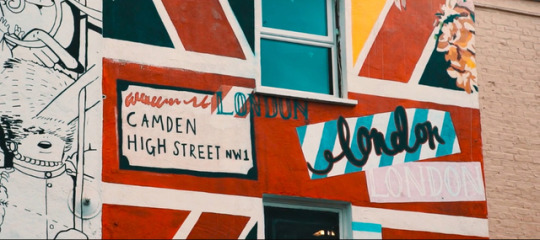 LONDON
CAMDEN
HIGH STREET NW1
london
LONDON